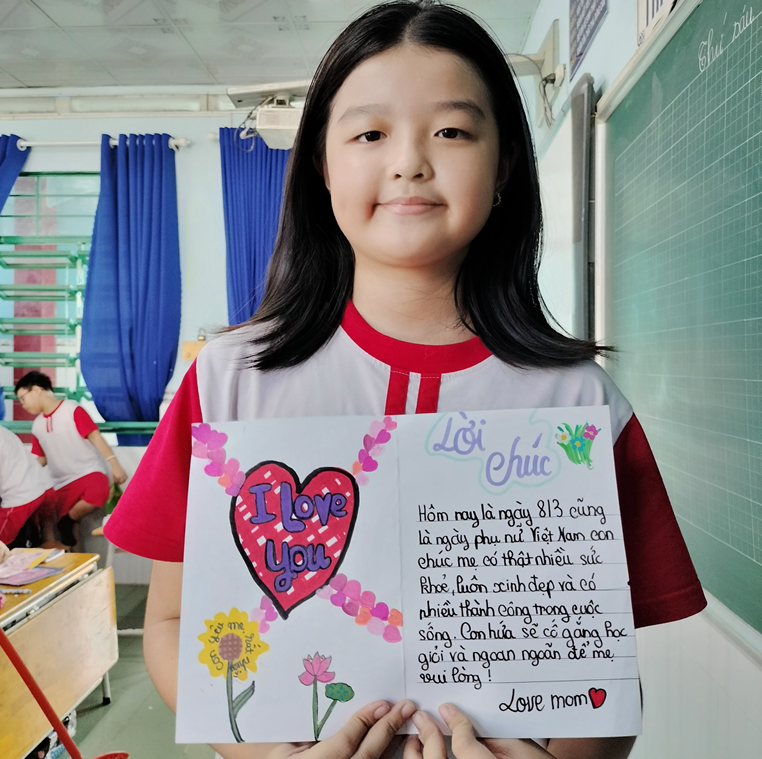 Thứ sáu
I Love
you
Con yêu mẹ rất nhiều
Lời
chúc
Hôm nay là ngày 8/3 cũng
là ngày phụ nữ Việt Nam con
chúc mẹ có thật nhiều sức
khoẻ, luôn xinh đẹp và có
nhiều thành công trong cuộc
sống. Con hứa sẽ cố gắng học
giỏi và ngoan ngoãn để mẹ
vui lòng !
Love mom